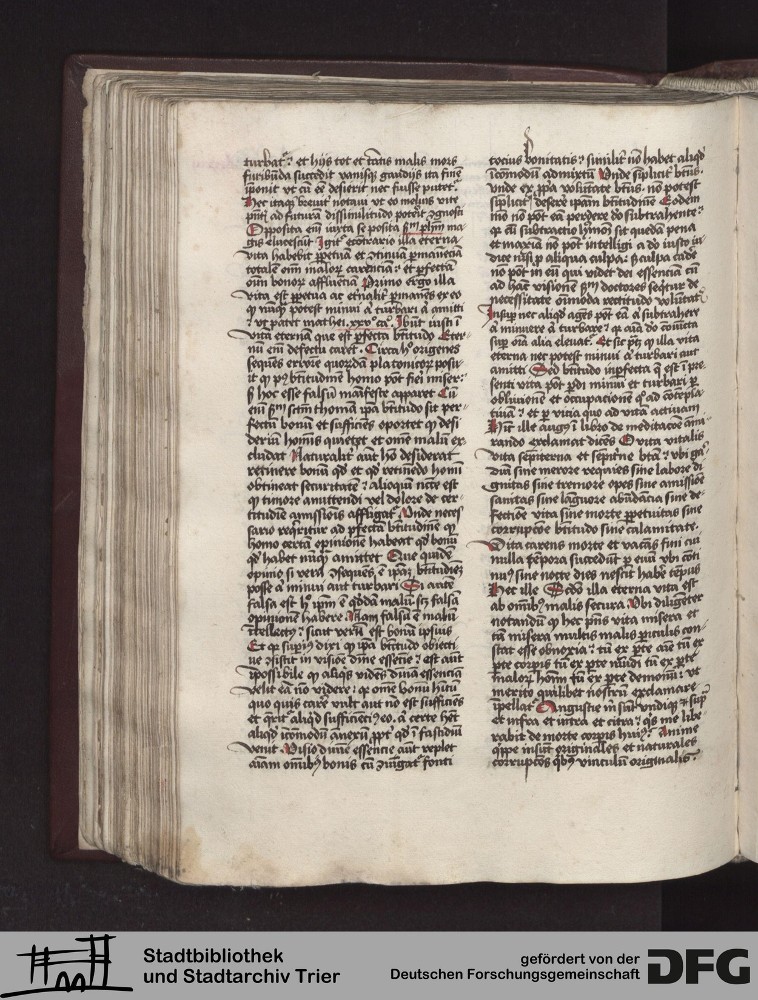 turbat(ur) et hijs tot et tantis malis mors
furibunda succedit vanisq(ue) gaudijs ita fine
iponit ut cu ee desierit nec fuisse putet
Hec itaq breuit notaui ut eo melius vite
pnti ad futura dissimilitudo poterit
Opposita eni iuxta se posita sm phm ma
gis elucescut Igit econtrario illa eterna
vita habebit ppetua et
totale oim malor carencia et pfecta
oim bonor affluecia Primo ergo illa
vita est ppetua ac etnalit pmanes ex eo
q nuq potest minui a turbari a amitti
ut patet mathei xxv ca Ibut iusti i
vita eterna que est pfecta btitudo Eter
nu eni defectu caret Circa h origenes
seques errore quorda platonicor posu
it q p btitudine homo pot fieri miser
s hoc esse falsu manifeste apparet Cu
eni sm sctm thoma ipa btitudo sit per
fectu bonu et sufficies oportet q desi
deriu homis quietet et ome malu ex
cludat Naturalit aut ho desiderat
retinere bonu qd et qd retinedo homi
obtineat securitate alioqui necce est
q timore amittendi vel dolore de cer
titudie amissiois affligat Unde neces
sario reqritur ad pfecta btitudine q
homo certa opinione habeat qd bonu
qd habet nuq amittet Que quide
opinio si vera
posse a minui aut turbari Si aute
falsa est h ipm e qdda malu scz falsa
opinione habere Nam falsu e malu
itellectus sicut veru est bonu ipsius
Et q supius dixi q ipa btitudo obiecti
ue osistit in visioe diune essetie est aut
ipossibile q aliqs vides diuina essencia
velit ea no videre q ome bonu hitu
quo quis care vult aut no est sufficies
et qrit aliqd sufficieci eo a certe het
aliqd icomodu anexu ppt qd i fastidiu
venit Visio diune essencie aut replet
aiam omibus bonis cu iugat fonti
tocius bonitatis similit no habet aliqd
icomodu admixtu Unde siplicit btus
unde ex ppa volutate btus no potest
siplicit desere ipam btitudine Eodem
mo no pot ea perdere do subtrahente
q cu subtractio hmoi sit queda pena
et maxia no pot intelligi a do iusto iu
dice nisi p aliqua culpa s culpa cade
no pot in eu qui videt dei essencia cu
ad hac visione sm doctores seqtur de
necessitate oimoda rectitudo volutat
Insup nec aliqd ages pot ea a subtrahere
a minuere a turbare q aia do coiucta
sup oia alia eleuat Et sic pz q illa vita
eterna nec potest minui a turbari aut
amitti Sed btitudo inpfecta q est i pre
senti vita pot pdi minui et turbari p
obliuione et occupatione q ad cotepla
tiua et p vicia quo ad vita actiuam
Huc ille augus i libro de meditacoe ami
rando exclamat dices O vita vitalis
vita sepiterna et sepitne bta ubi gau
diu sine merore requies sine labore di
gnitas sine tremore opes sine amissioe
sanitas sine laguore abudacia sine de
fectioe vita sine morte ppetuitas sine
corrupcoe btitudo sine calamitate
Vita carens morte et vacas fini cui
nulla tepora succedut p euu ubi coti
nuus sine nocte dies nescit habe tepus
Hec ille Secudo illa eterna vita est
ab omibus malis secura Ubi diligeter
notandu q hec pns vita misera et
ta misera multis malis periculis con
stat esse obnoxia tu ex pte aie tu ex
pte corpis tu ex pte mudi tu ex pte
malor hoim tu ex pte demonu ut
merito quilibet nostru exclamare
ipellat Angustie in sut undiq sup
et infra et intra et citra qs me libe
rabit de morte corpis huius Anime
qippe insut originales et naturales
corrupcoes qbus vinculu originalis
Stadtbibliothek
und Stadtarchiv Trier
gefördert von der
Deutschen Forschungsgemeinschaft
DFG